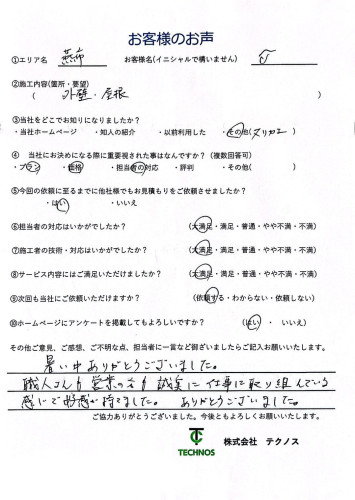 お客様のお声
①エリア名 燕市 お客様名(イニシャルで構いません)
②施工内容(箇所・要望)
( 外壁・屋根 )
③当社をどこでお知りになりましたか？
・当社ホームページ ・知人の紹介 ・以前利用した ・その他( ヌリカエ )
④ 当社にお決めになる際に重要視された事はなんですか？（複数回答可）
・プラン ・価格 ・担当者の対応 ・評判 ・その他( )
⑤今回の依頼に至るまでに他社様でもお見積もりをご依頼させましたか？
・はい ・いいえ
⑥担当者の対応はいかがでしたか？ (大満足・満足・普通・やや不満・不満)
⑦施工者の技術・対応はいかがでしたか？ (大満足・満足・普通・やや不満・不満)
⑧サービス内容にはご満足いただけましたか？ (大満足・満足・普通・やや不満・不満)
⑨次回も当社にご依頼いただけますか？ (依頼する・わからない・依頼しない)
⑩ホームページにアンケートを掲載してもよろしいですか？ (はい ・ いいえ)
その他ご意見、ご感想、ご不明な点、担当者に一言など御ざいましたらご記入お願いいたします。
暑い中ありがとうございました。
職人さんも営業の方も誠実に仕事に取り組んでいる
感じで好感が持てました。 ありがとうございました。
ご協力ありがとうございました。今後ともよろしくお願いいたします。
TECHNOS 株式会社 テクノス